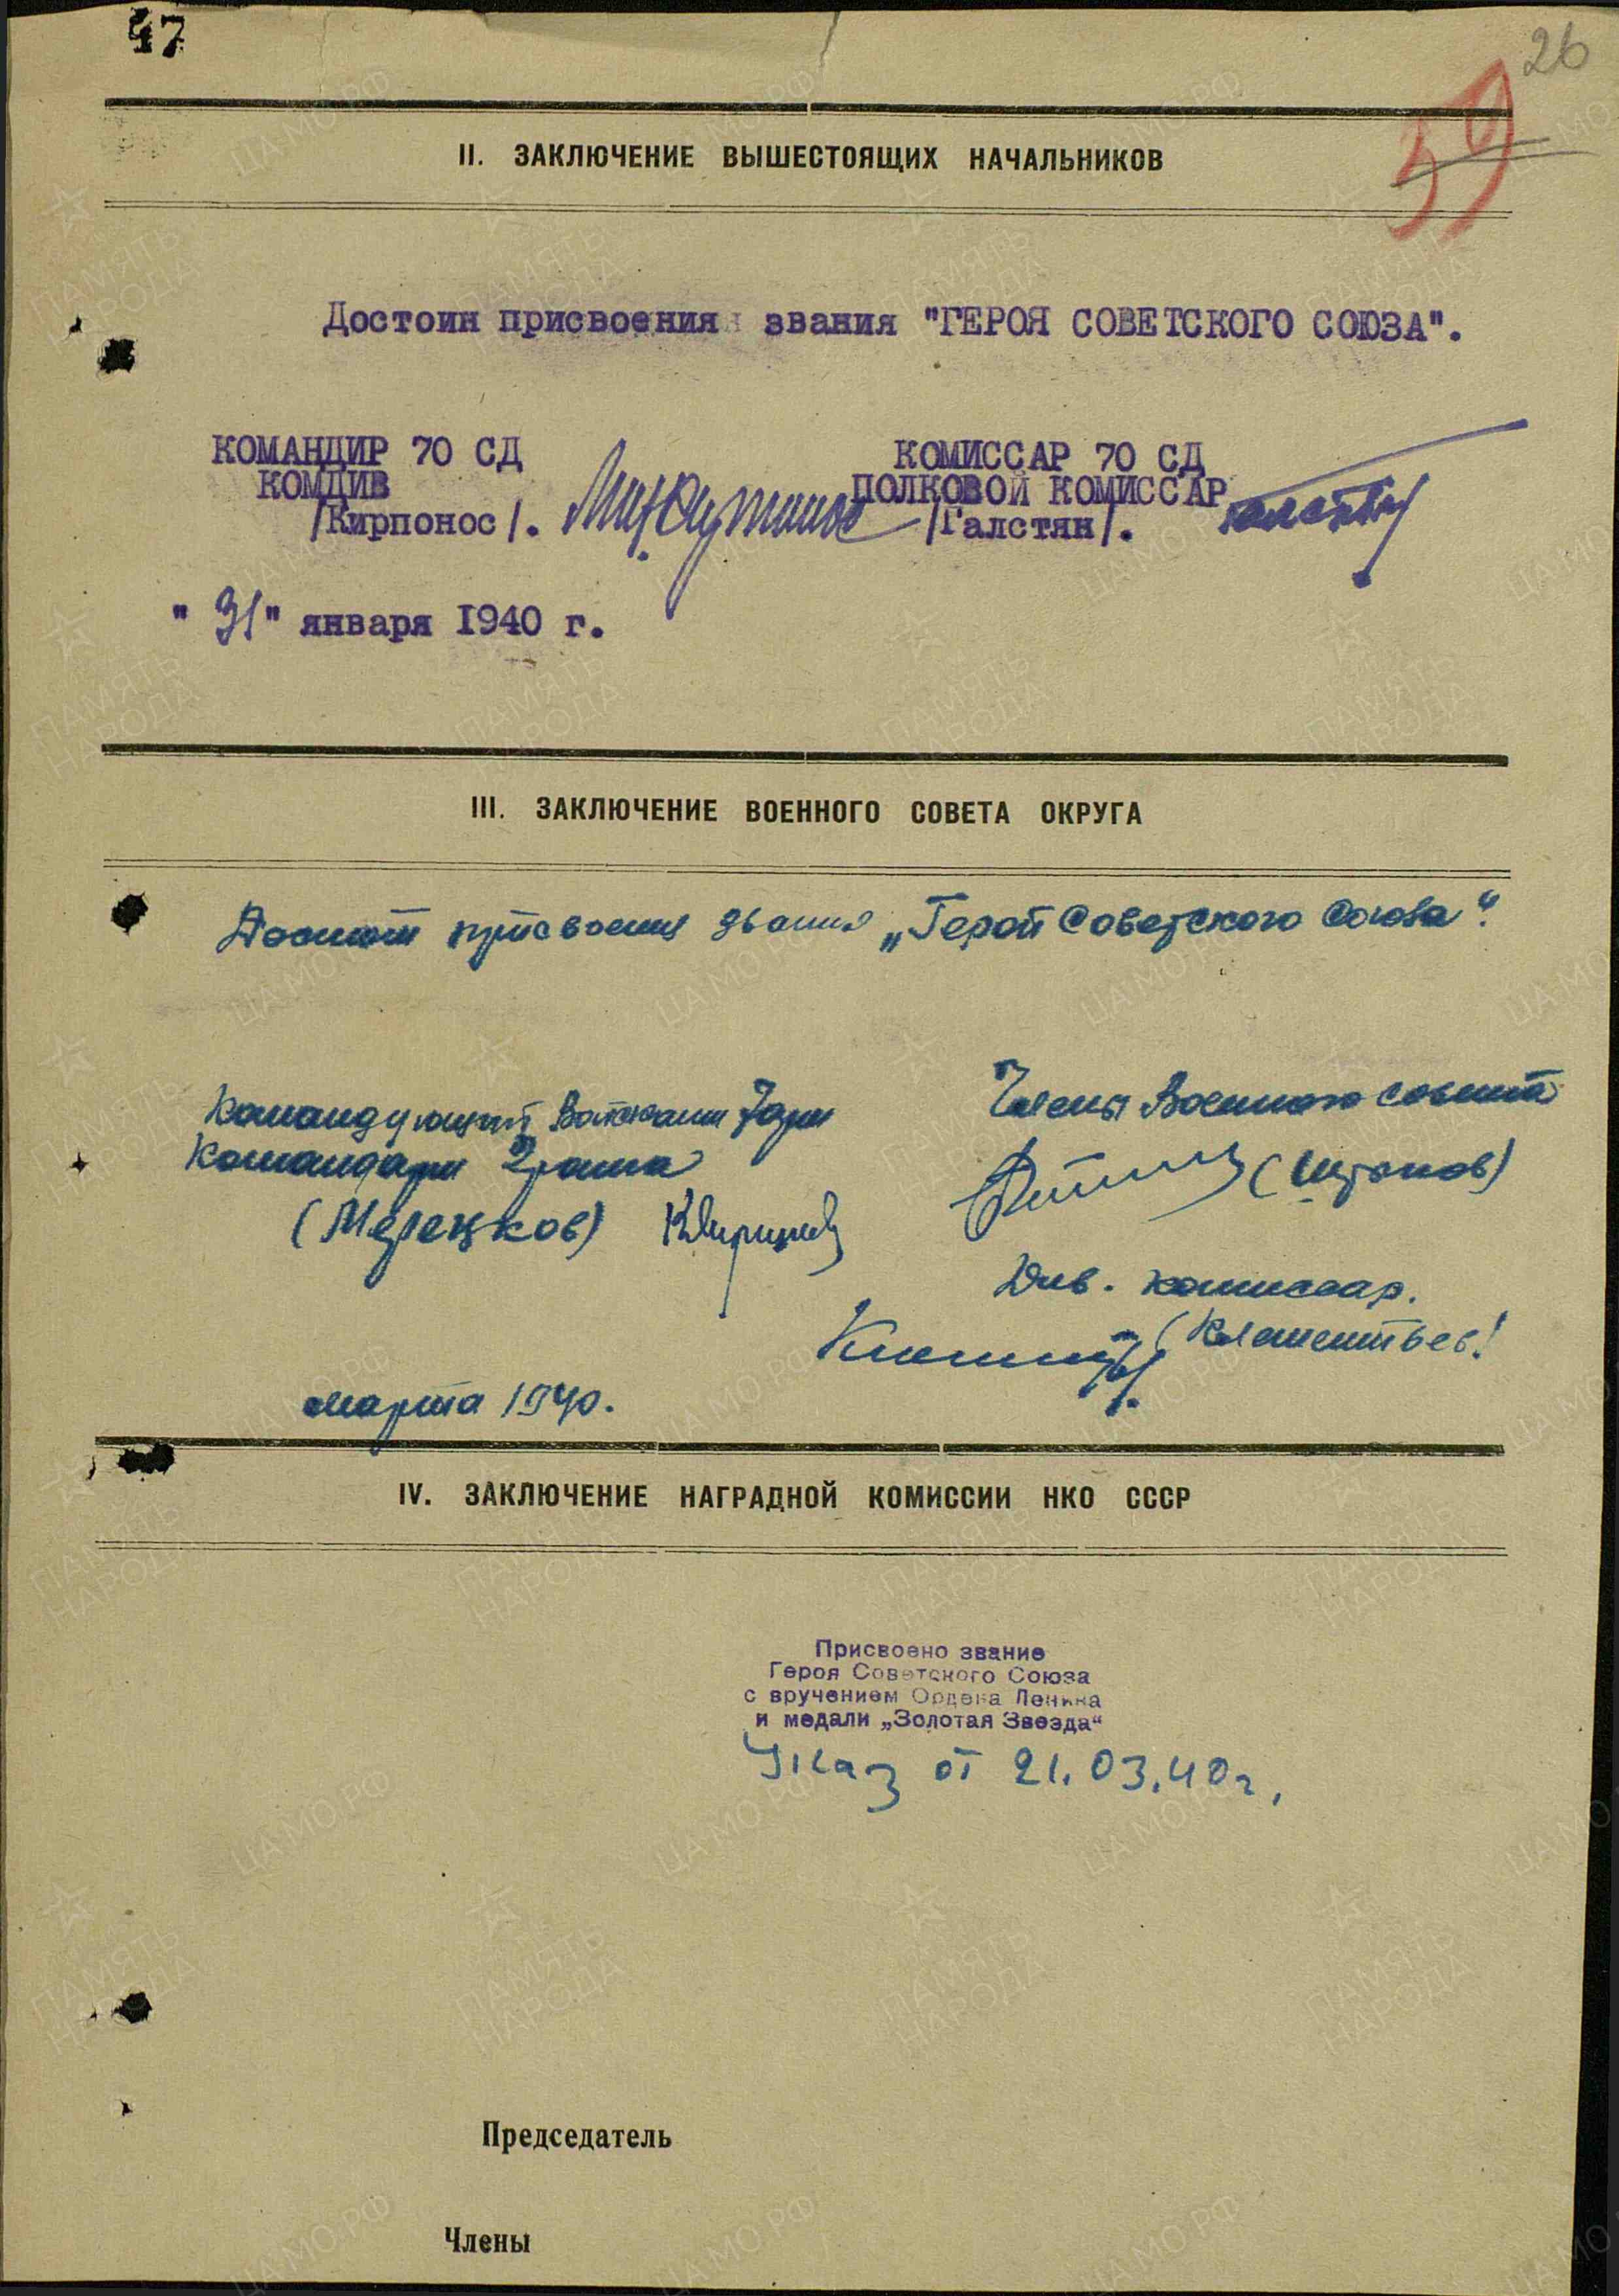 47
26
59
II. ЗАКЛЮЧЕНИЕ ВЫШЕСТОЯЩИХ НАЧАЛЬНИКОВ
Достоин присвоения звания "ГЕРОЯ СОВЕТСКОГО СОЮЗА".
КОМАНДИР 70 СД
КОМДИВ
/Кирпонос/.
КОМИССАР 70 СД
ПОЛКОВОЙ КОМИССАР
/Галстян/.
"31" января 1940 г.
III. ЗАКЛЮЧЕНИЕ ВОЕННОГО СОВЕТА ОКРУГА
Достоин присвоения звания „Герой Советского Союза".
Командующий Войсками 7 арм
Командарм 2 ранга
(Мерецков)
Члены Военного совета
Див. комиссар.
(Клементьев)
марта 1940.
IV. ЗАКЛЮЧЕНИЕ НАГРАДНОЙ КОМИССИИ НКО СССР
Присвоено звание
Героя Советского Союза
с вручением Ордена Ленина
и медали „Золотая Звезда“
Указ от 21.03.40г.
Председатель
Члены
ПАМЯТЬ НАРОДА
ЦАМО.РФ